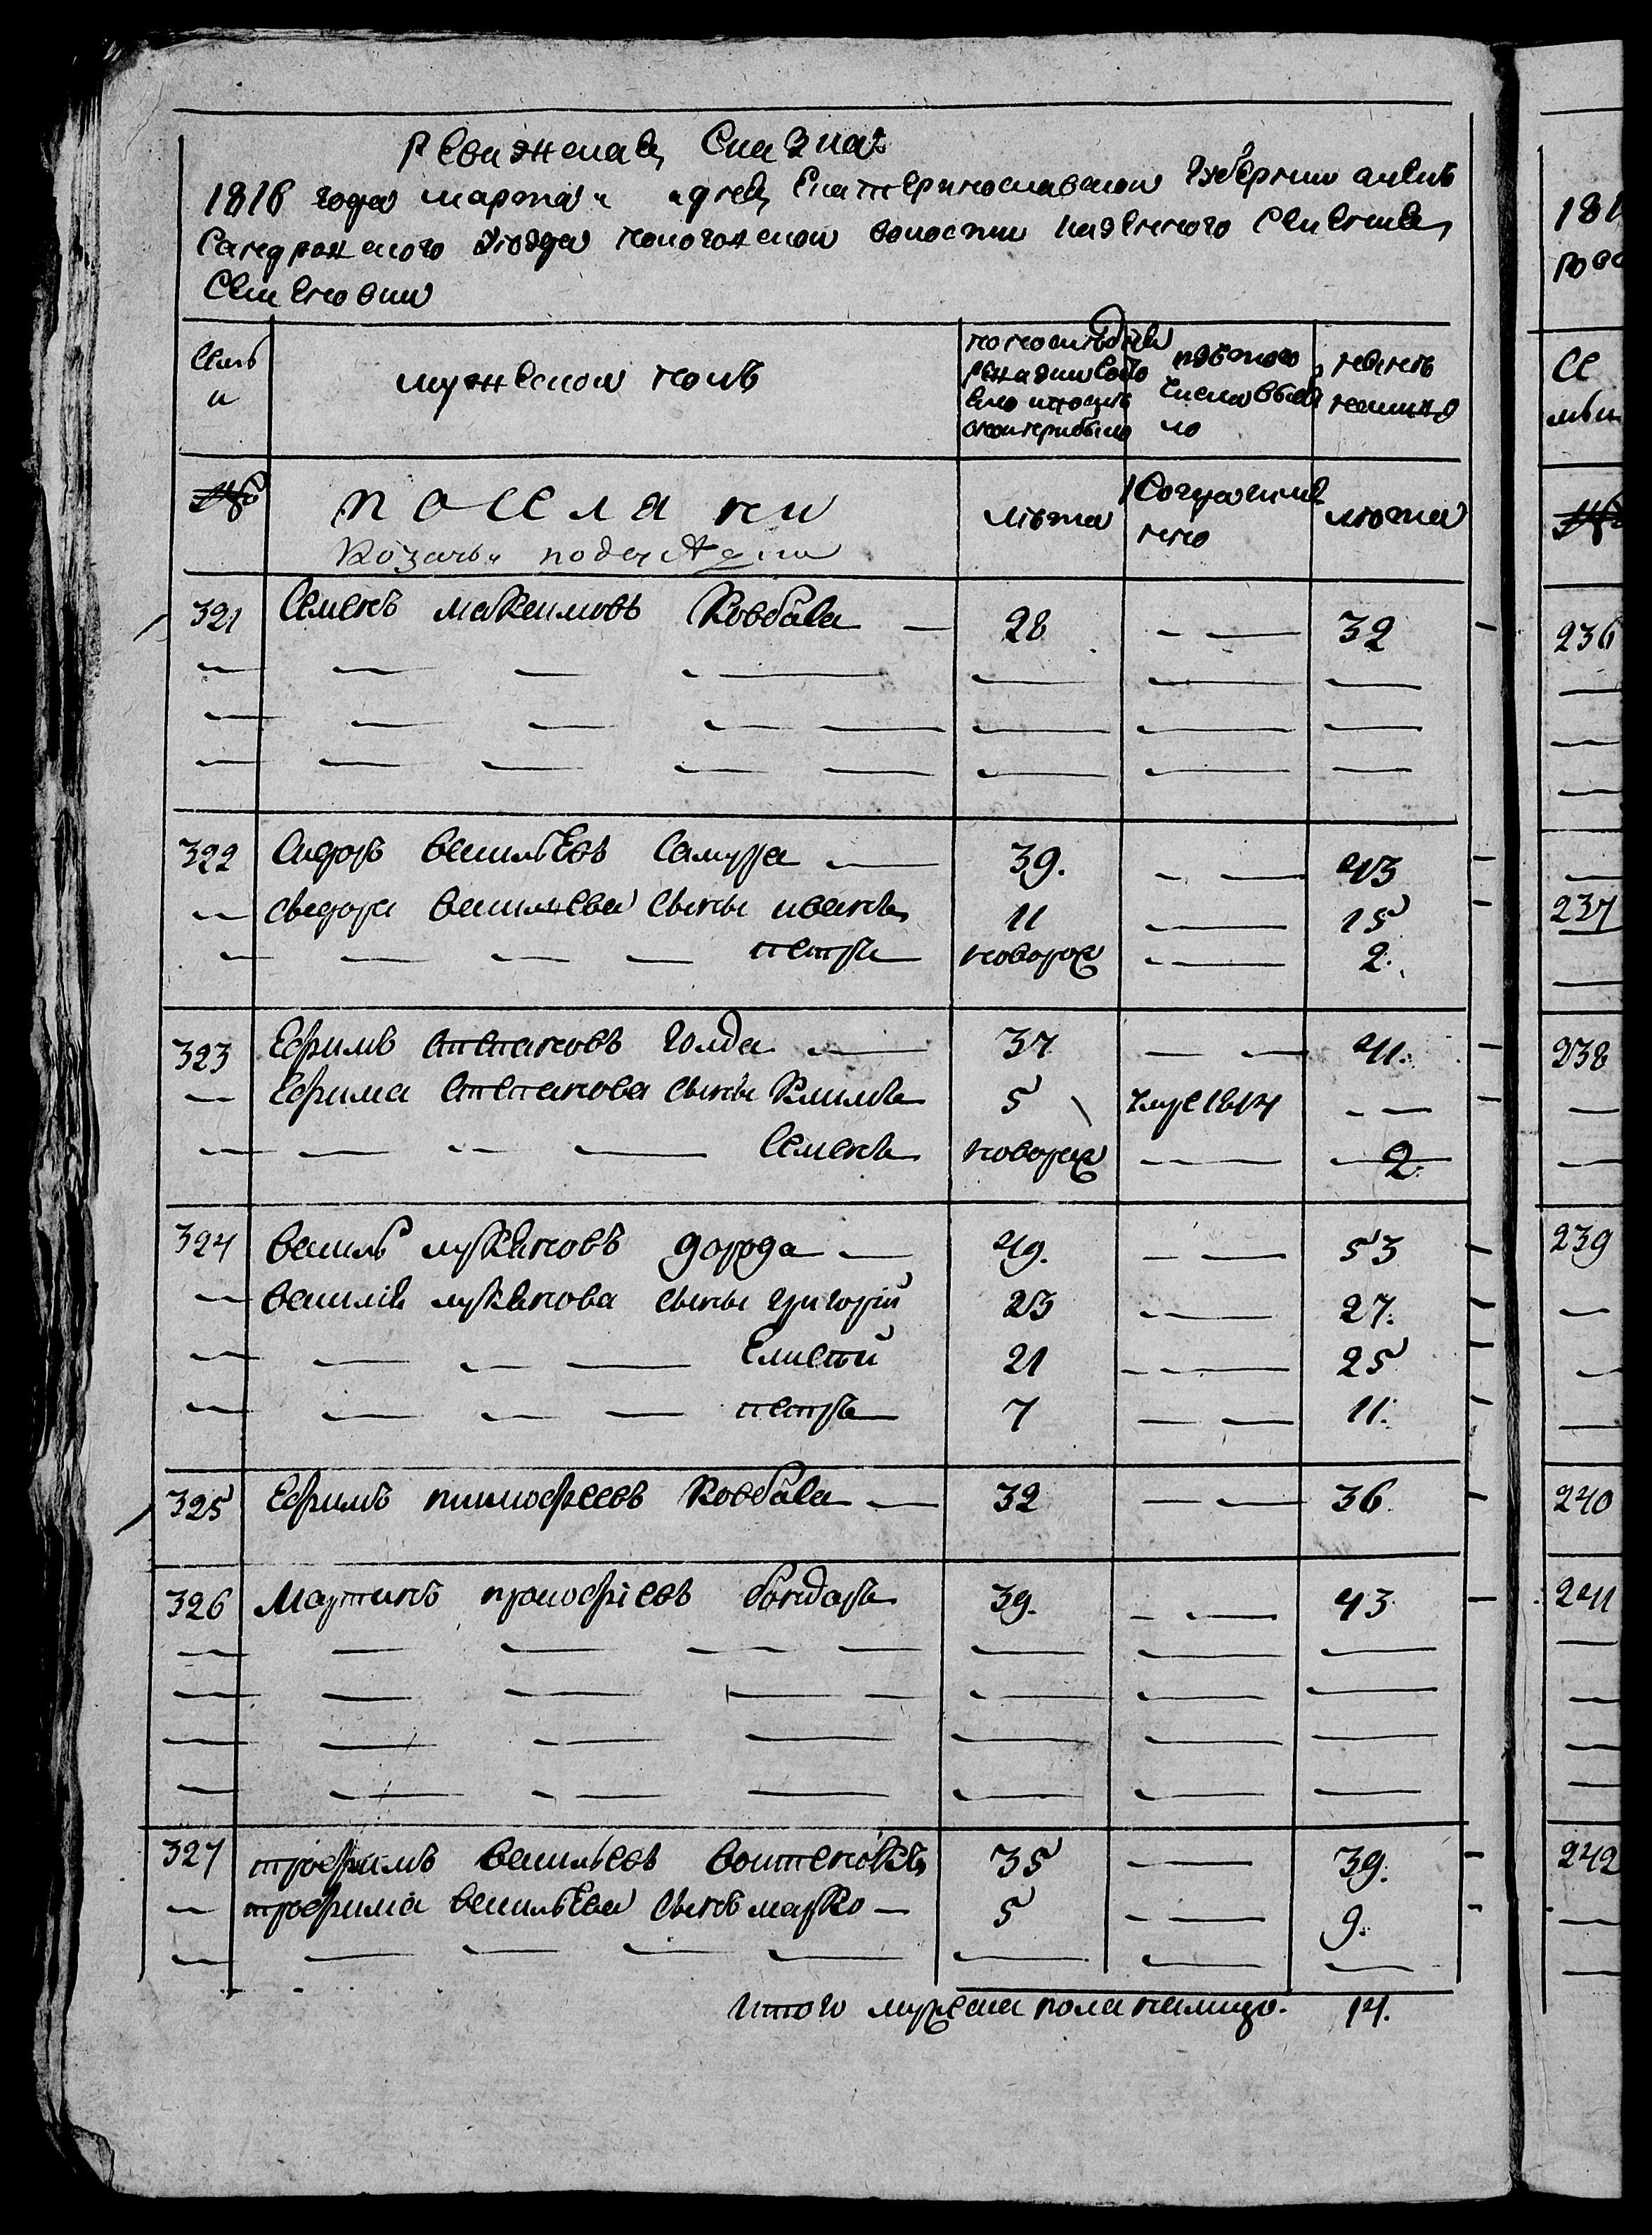 Ревижская Сказка
1816 года марта " " дня Екатеринославской губернии Алекъ
сандровского уезда волости казенного селения
Семъ
и
мужеской полъ
по последней
ревизии состо
яло и после
оной прибыло
изъ того
числа выбы
ло
ныне
налицо
№
поселяне
Козачьи
лета
Когда имен
но
лета
321 Семенъ Максимовъ Ковбаса 28 — 32
322 Сидоръ Васильевъ Самура 39. — 43
Сидора Васильева сынъ иванъ 11 — 15
петръ новорож — 2.
323 Ефимъ Степановъ Голда 37 — 41.
Ефима Степанова сынъ Климъ 5 умре 1814 —
Семенъ новорож — 2.
324 Василь Лукяновъ 49. — 53
Василия Лукянова сынъ григорій 23 — 27.
21 — 25
петръ 7 — 11.
325 Ефимъ тимофеевъ Ковбаса 32 — 36.
326 Мартинъ Бондарь 39. — 43.
327 трофимъ Васильевъ Войтенковъ 35 — 39.
трофима Васильева сынъ марко 5 — 9.
Итого мужеска пола налицо. 14.
181
Се
мьи
№
236
237
238
239
240
241
242